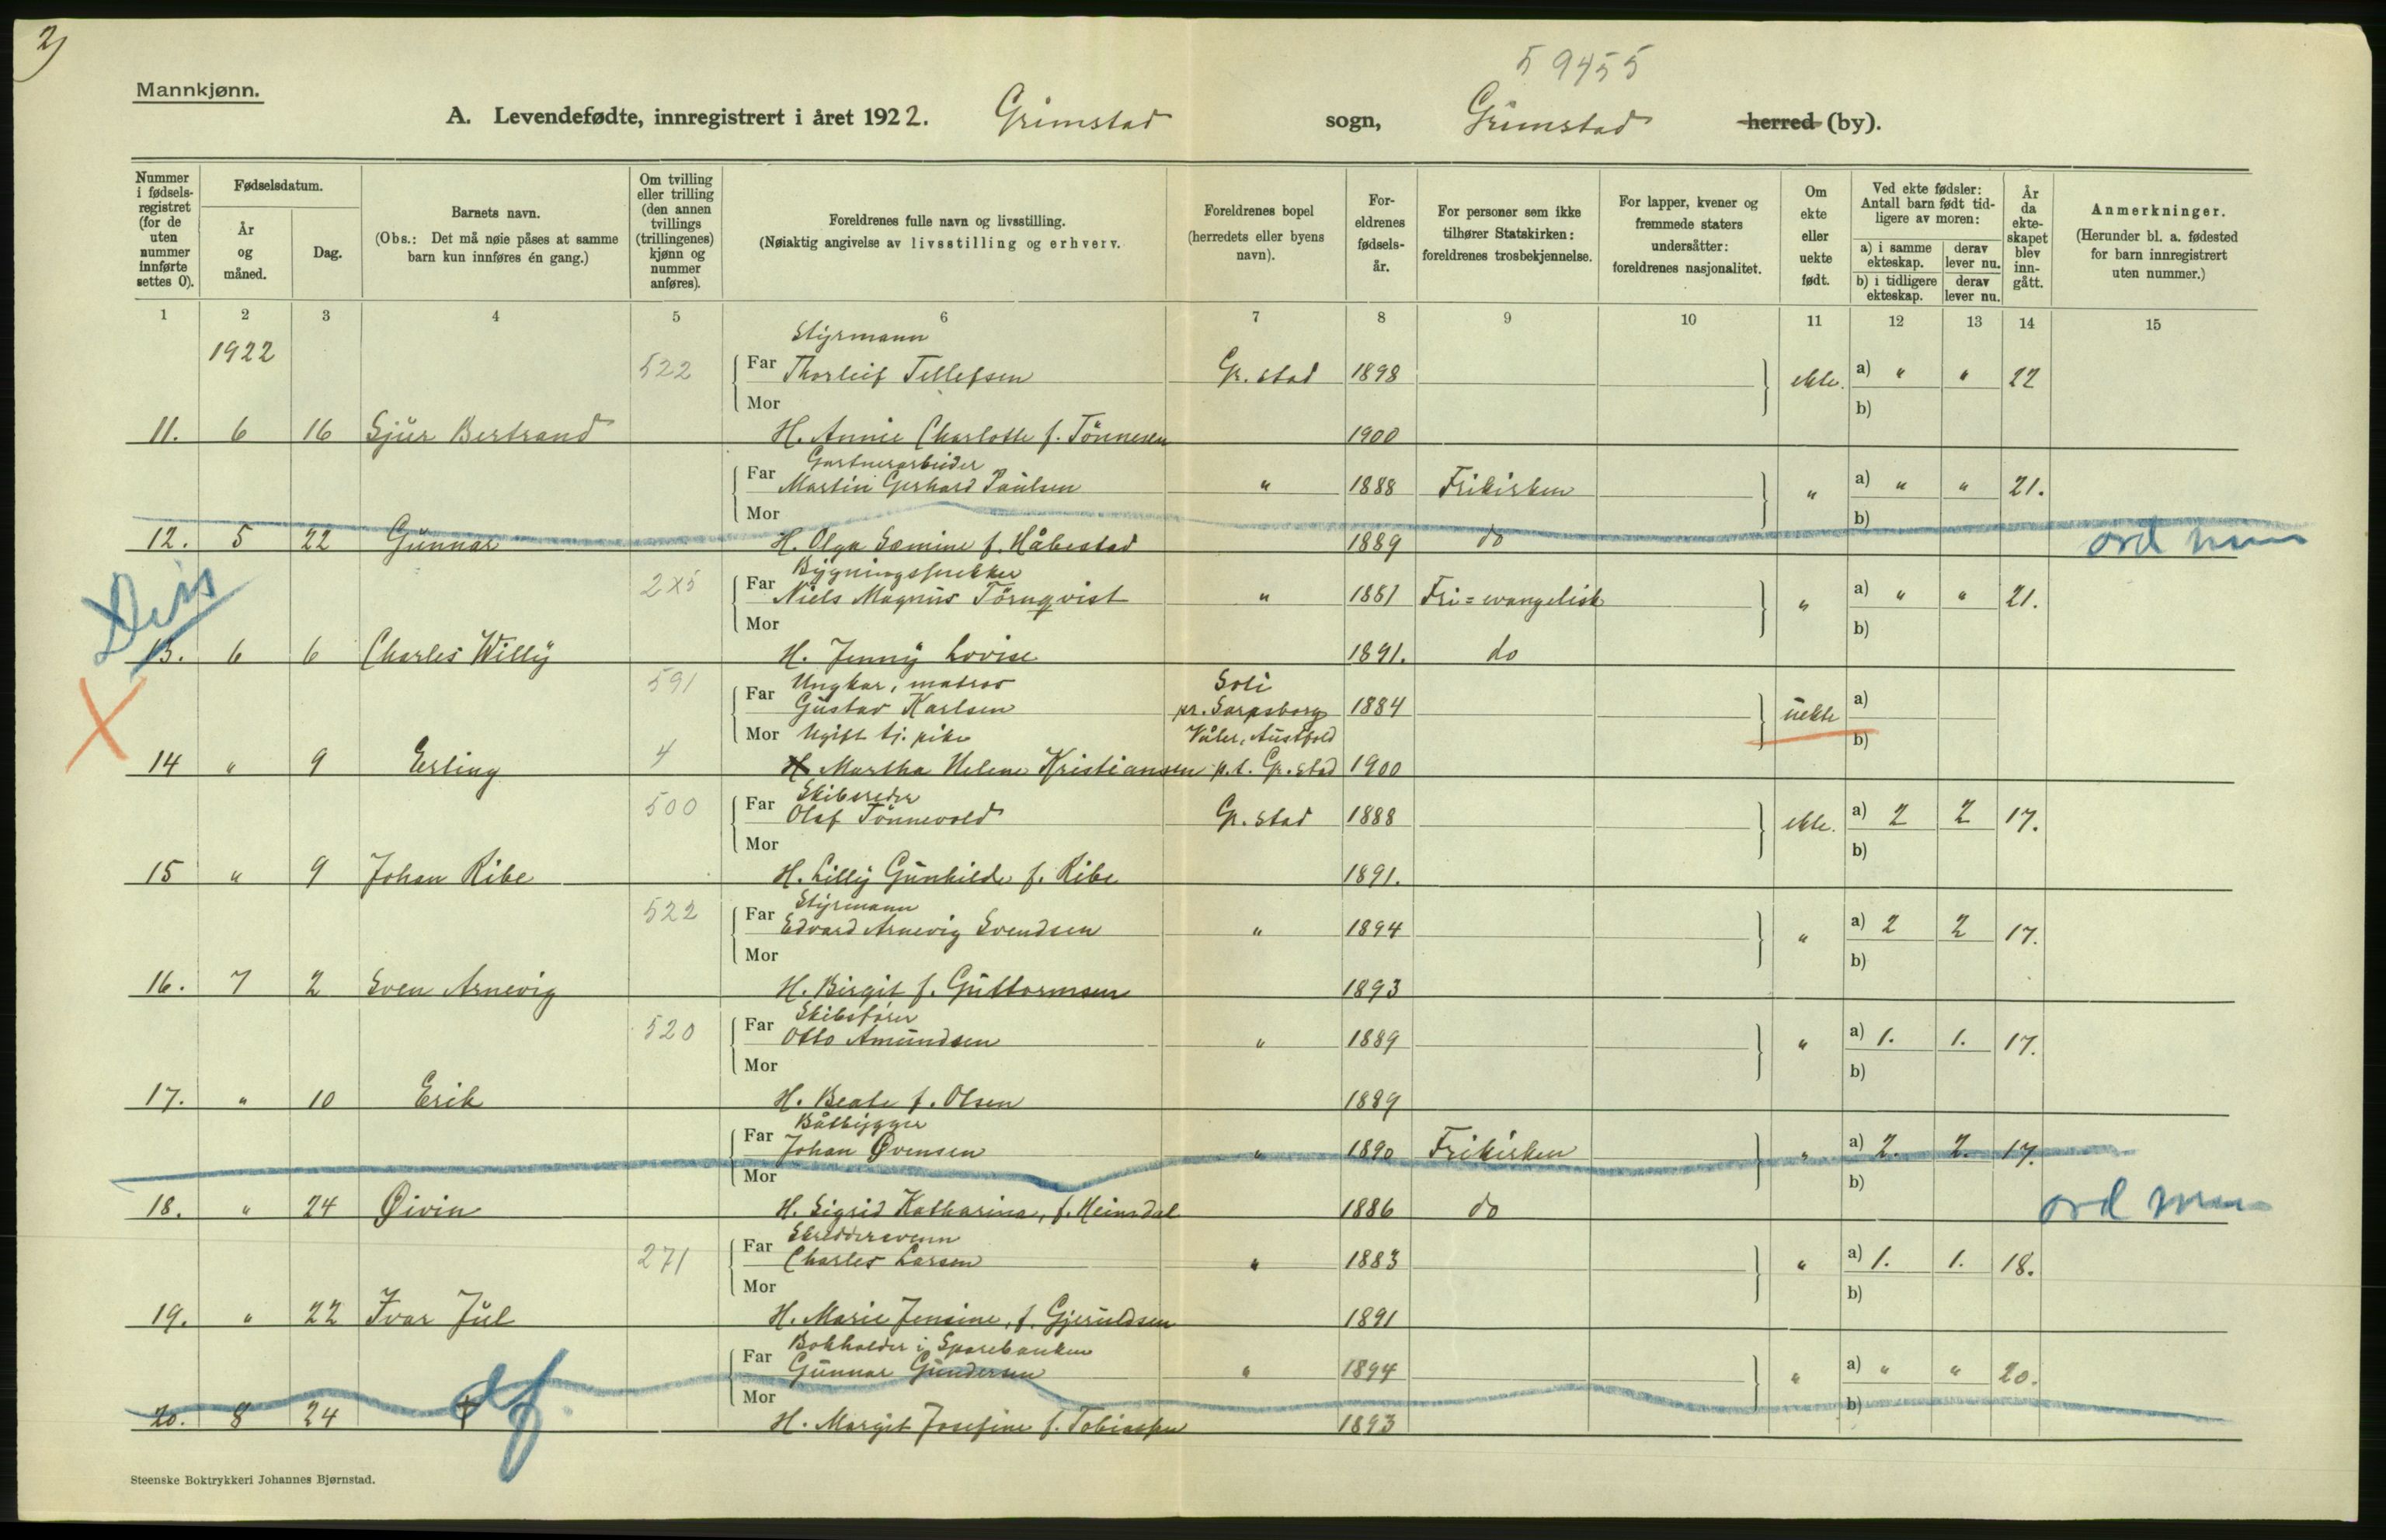 2)
59455
Mannkjønn.
A. Levendefødte, innregistrert i året 1922. Grimstad sogn, Grimstad herred (by).
Nummer i fødselsregistret (for de uten nummer innførte settes 0).
Fødselsdatum.
År og måned.
Dag.
Barnets navn.
(Obs.: Det må nøie påses at samme barn kun innføres én gang.)
Om tvilling eller trilling (den annen tvillings (trillingenes) kjønn og nummer anføres).
Foreldrenes fulle navn og livsstilling.
(Nøiaktig angivelse av livsstilling og erhverv.
Foreldrenes bopel (herredets eller byens navn).
Foreldrenes fødselsår.
For personer som ikke tilhører Statskirken: foreldrenes trosbekjennelse.
For lapper, kvener og fremmede staters undersåtter: foreldrenes nasjonalitet.
Om ekte eller uekte født.
Ved ekte fødsler: Antall barn født tidligere av moren:
a) i samme ekteskap. derav lever nu.
b) i tidligere ekteskap. derav lever nu.
År da ekteskapet blev inngått.
Anmerkninger.
(Herunder bl. a. fødested for barn innregistrert uten nummer.)
1 2 3 4 5 6 7 8 9 10 11 12 13 14 15
1922
Styrmann
522 Far Thorleif Tellefsen Gr.stad 1898 ekte. a) " " 22
Mor b)
11. 6 16 Sjur Bertrand H. Annie Charlotte f. Tönnesen 1900
Gartnerarbeider
Far Martin Gerhard Paulsen " 1888 Frikirken " a) " " 21.
Mor b)
12. 5 22 Gunnar H. Olga Samine f. Håbestad 1889 do ord
Diss
Bygningssnekker
2x5 Far Niels Magnus Törnqvist " 1881 Fri=evangelisk " a) " " 21.
Mor b)
13. 6 6 Charles Willy H. Jenny Lovise 1891. do
Ungkar, matros Soli
591 Far Gustav Karlsen pr. Sarpsborg 1884 uekte a)
Mor Ugift tj. pike Våler, Austfold b)
X
14 " 9 Erling 4 H Martha Helene Kristiansen p.t. Gr.stad 1900
Skibsreder
500 Far Olaf Tönnevold Gr.stad 1888 ekte. a) 2 2 17.
Mor b)
15 " 9 Johan Ribe H. Lilly Gunhilde f. Ribe 1891.
Styrmann
522 Far Edvard Arnevig Svendsen " 1894 " a) 2 2 17.
Mor b)
16. 7 2 Sven Arnevig H. Birgit f. Guttormsen 1893
Skibsfører
520 Far Otto Amundsen " 1889 " a) 1. 1. 17.
Mor b)
17. " 10 Erik H. Beate f. Olsen 1889
Båtbygger
Far Johan Øvensen " 1890 Frikirken " a) 2. 2. 17.
Mor b)
18. " 24 Øivin H. Sigrid Katharina, f. Heimdal 1886 do ord
Skreddersvenn
271 Far Charles Larsen " 1883 " a) 1. 1. 18.
Mor b)
19. " 22 Ivar Jul H. Marie Jensine, f. Gjeruldsen 1891
Bokholder i Sparebanken
Far Gunnar Gundersen " 1894 " a) " " 20.
Mor b)
20. 8 24 † df. H. Margit Josefine f. Tobiassen 1893
Steenske Boktrykkeri Johannes Bjørnstad.